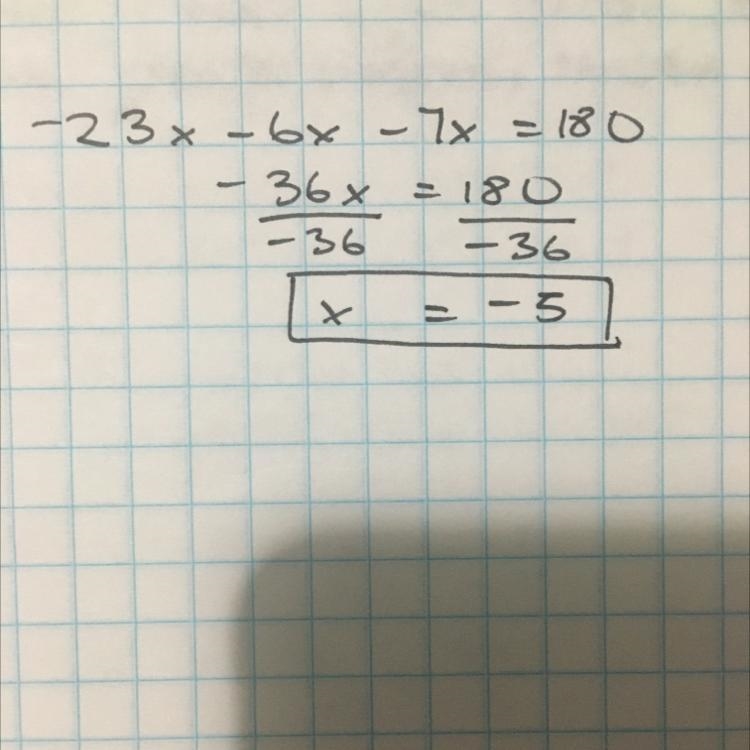 -23x - 6x - 7x = 180
-36x = 180
-36 -36
x = -5